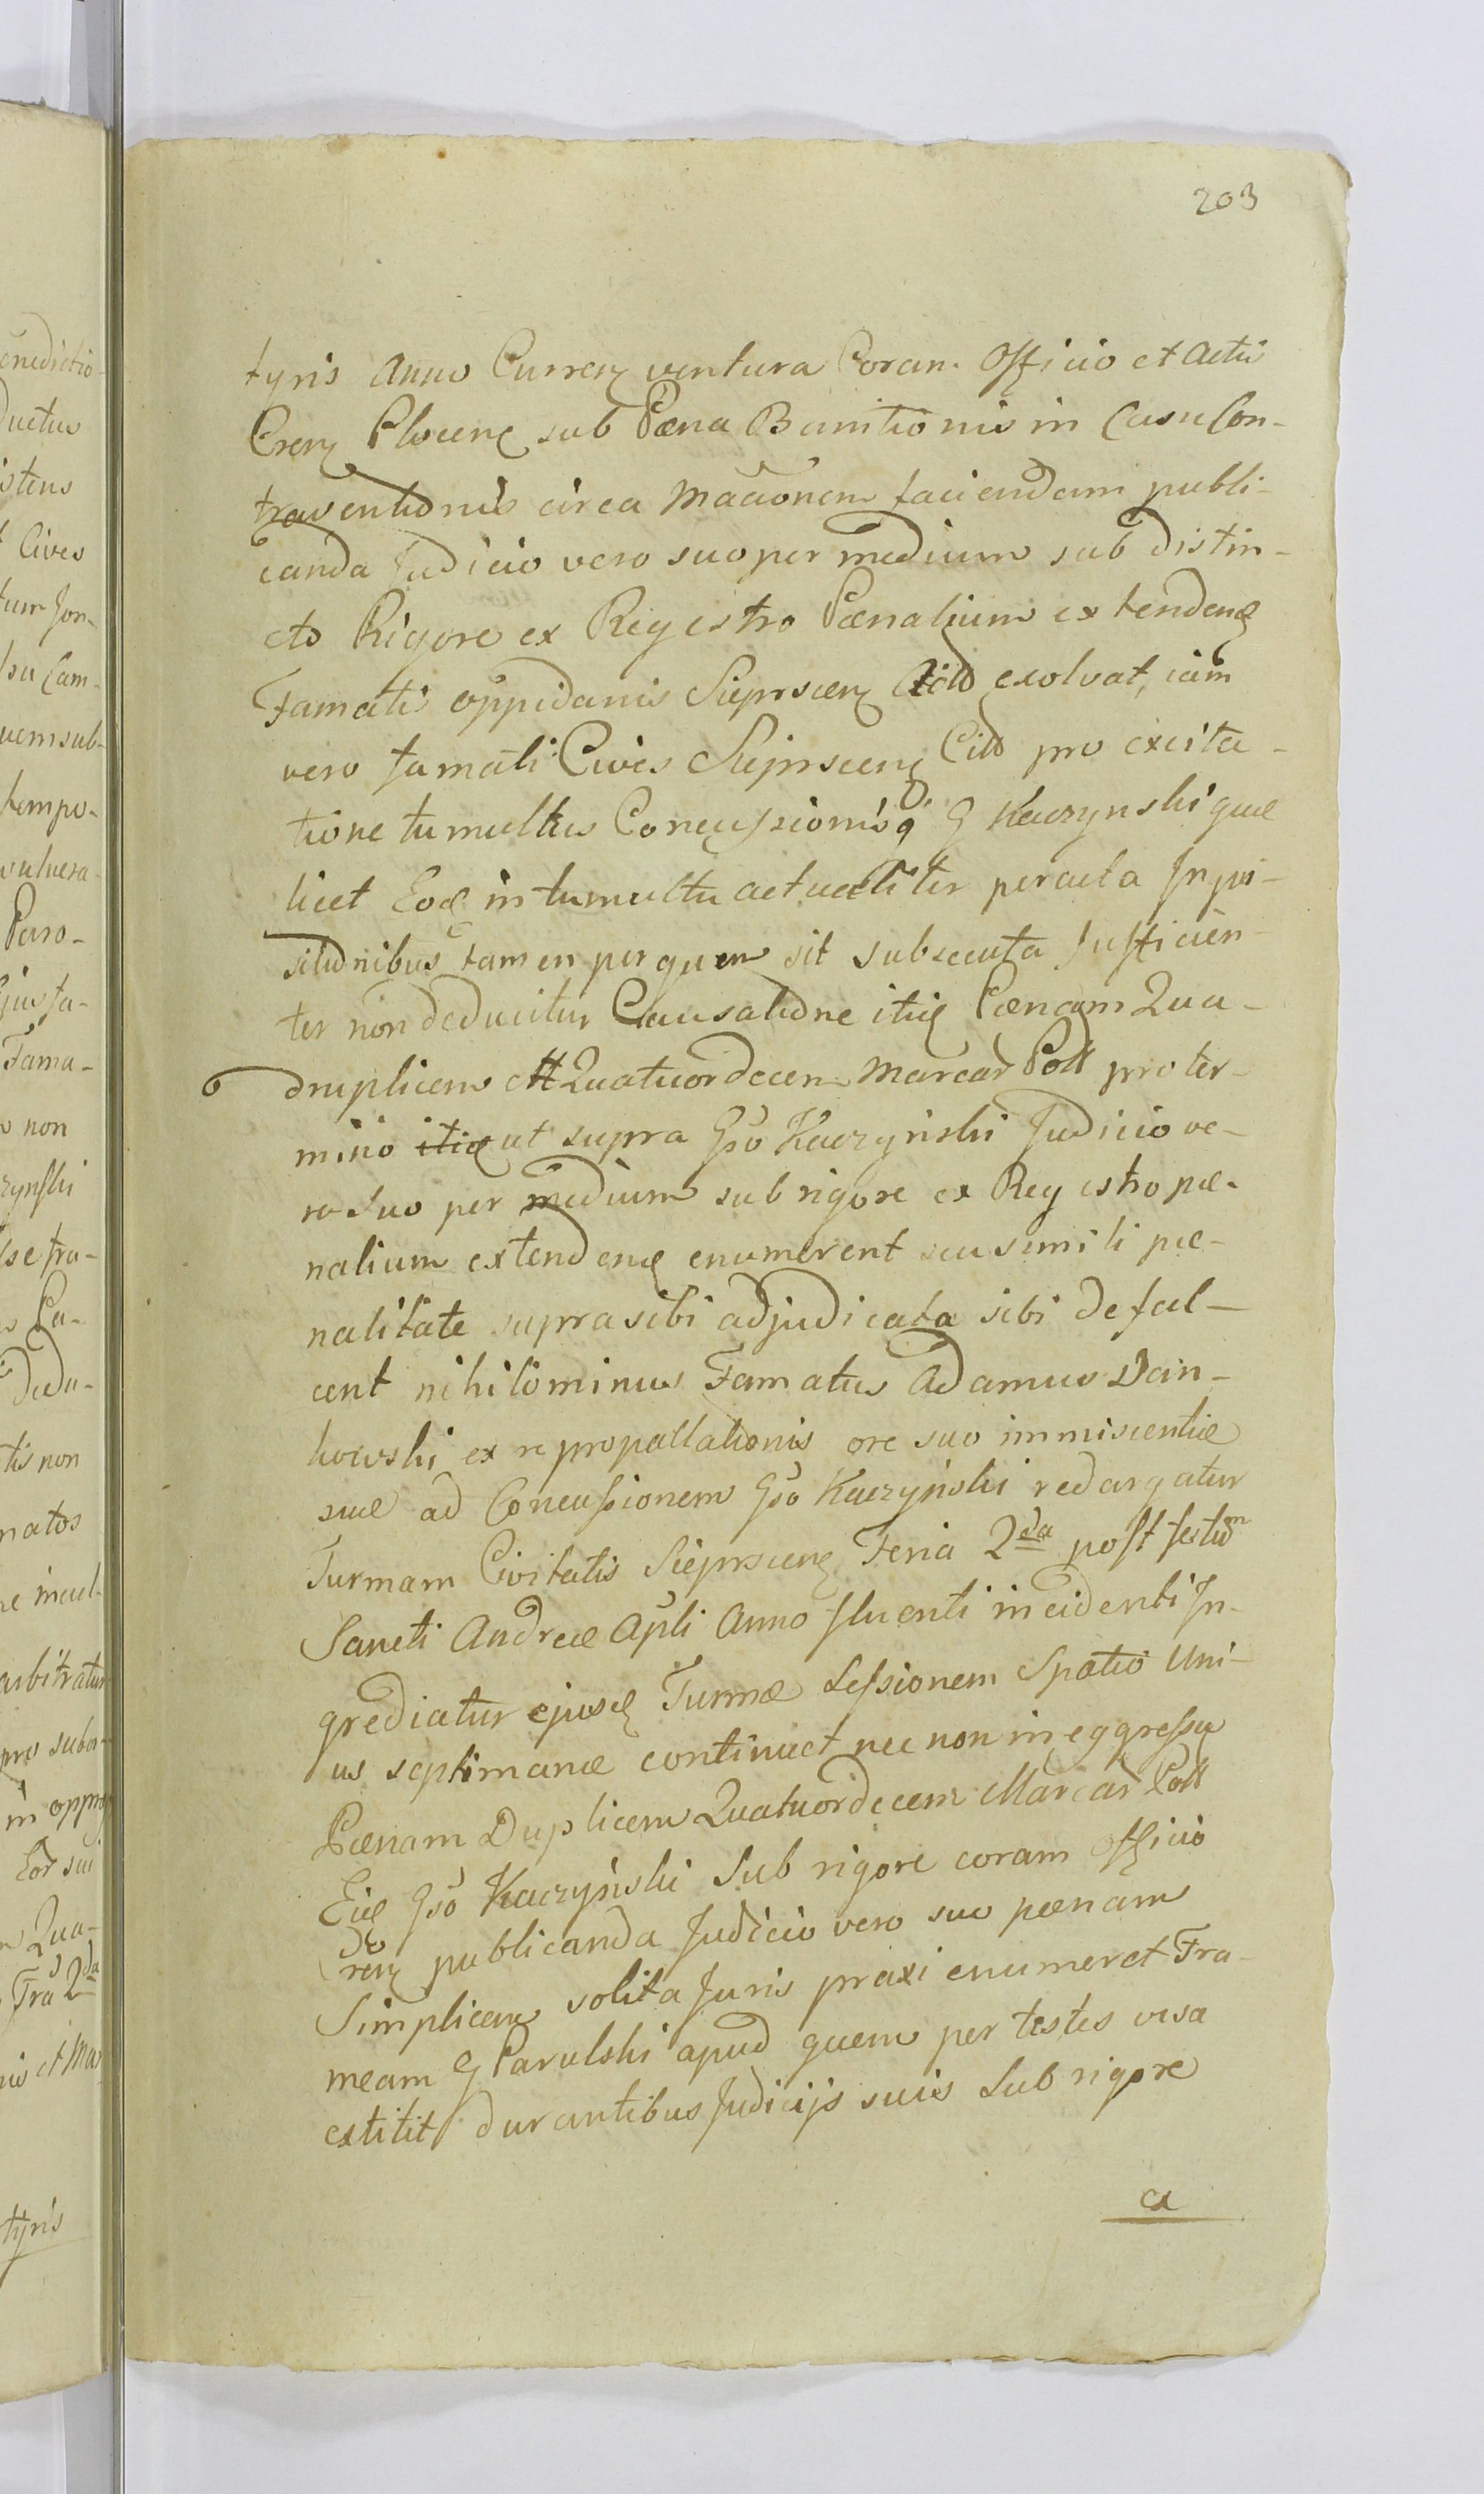 203
tyris Anno Curren ventura Coram Officio et Actis
Cren Plocen sub Pæna Banitionis in Casu Con-
traventionis circa Macionem faciendam publi-
canda Judicio vero suo per medium sub distin-
cto Rigore ex Regestro Pænalium extenden
Famatis oppidanis Sieprscen exolvat, iam
vero famati Cives Sieprscen Citti pro excita-
tione tumultus Concussionisq G Kaczynski quæ
licet Eod in tumultu actualiter peracta Inqui-
sitionibus tamen per quem sit subsecuta sufficien-
ter non deducitur Causatione itid Pænam Qua-
druplicem Quatuordecem Marcar Poll pro ter-
mino itid ut supra Gso Kaczynski Judicio ve-
ro suo per medium sub rigore ex Regestro pæ-
nalium extenden enumerent seu simili pæ-
nalitate supra sibi adjudicata sibi defal-
cent nihilominus Famatus Adamus Dan-
kowski ex re propallationis ore suo immiscentiæ
suæ ad Concussionem Gso Kaczynski redargatur
Turmam Civitatis Sieprscen Feria 2da post festum
Sancti Andreæ Apli Anno fluenti incidenti In-
grediatur ejusd Turmæ Sessionem Spatio Uni-
us septimanæ continuet nec non in eggressu
Pænam Duplicem Quatuordecem Marcar Poll
Eid Gso Kaczynski Sub rigore coram Officio
Cren publicanda Judicio vero suo pænam
Simplicem solita Juris praxi enumeret Fra-
meam G Parulski apud quem per testes visa
extitit durantibus Judicijs suis Sub rigore
ex
enedictio-
ductus
istens
Cives
tum Jon-
su Cam-
uem sub-
tempo-
vulnera-
Paro-
Ejus fa-
Fama-
non
zynski
se fra-
Ca-
dedu-
tis non
natos
re incul-
arbitratur
pro subor-
in oppro
Eor sui
Qua-
Fra 2da
et Mar
tyris